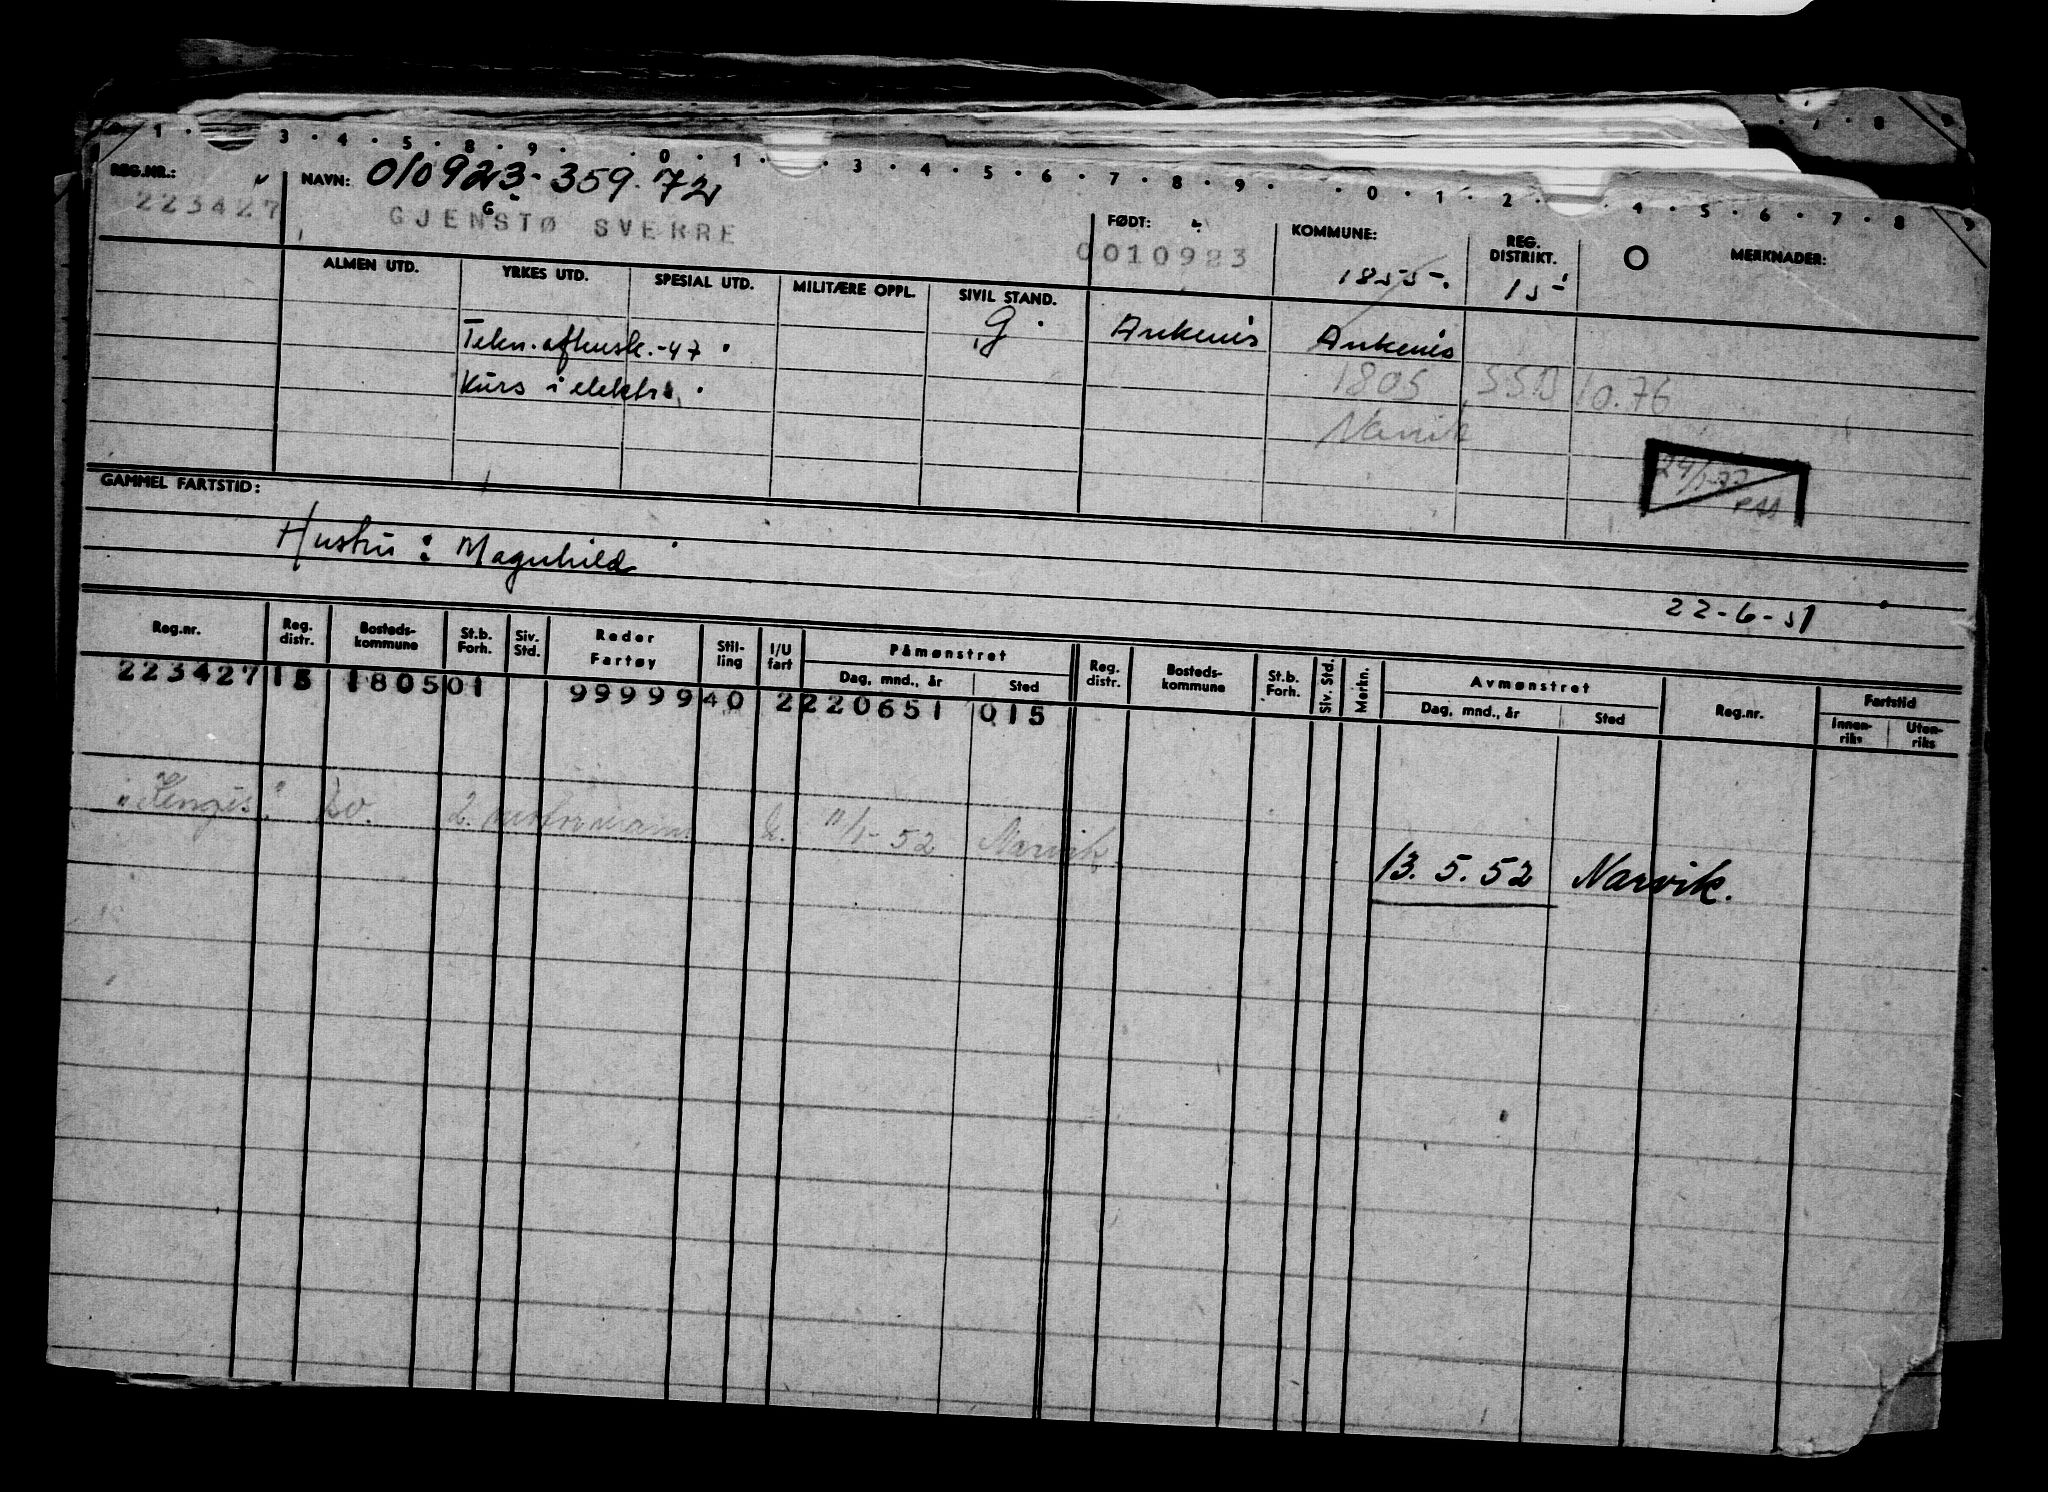 1 · 3 · 4 · 5 · 8 · 9 · 0 · 1 · 3 · 4 · 5 · 6 · 7 · 8 · 9 · 0 · 1 · 2 · 4 · 5 · 6 · 7 · 8 · 9
REG.NR.: NAVN: 010923-359.72
223427 GJENSTØ SVERRE
G
FØDT: KOMMUNE: REG. DISTRIKT. O MERKNADER:
0010923 1855-. 15
ALMEN UTD. YRKES UTD. SPESIAL UTD. MILITÆRE OPPL. SIVIL STAND.
Tekn. aftensk. -47 G Ankenis Ankenis
Kurs i elektr. 1805 SSB 10.76
Narvik
24/1-77
GAMMEL FARTSTID:
Hustru: Magnhild
22-6-51
Reg.nr. Reg. distr. Bosteds-kommune St.b. Forh. Siv. Std. Reder Fartøy Stil-ling I/U fart Påmønstret Dag, mnd., år Sted Reg. distr. Bosteds-kommune St.b. Forh. Siv. Std. Merkn. Avmønstret Dag, mnd., år Sted Reg.nr. Fartstid Innen-riks Uten-riks
223427 15 1805 01 99999 40 2 220651 015
"Kengis". 2. motormann U. 11/1-52 Narvik.
13.5.52 Narvik.